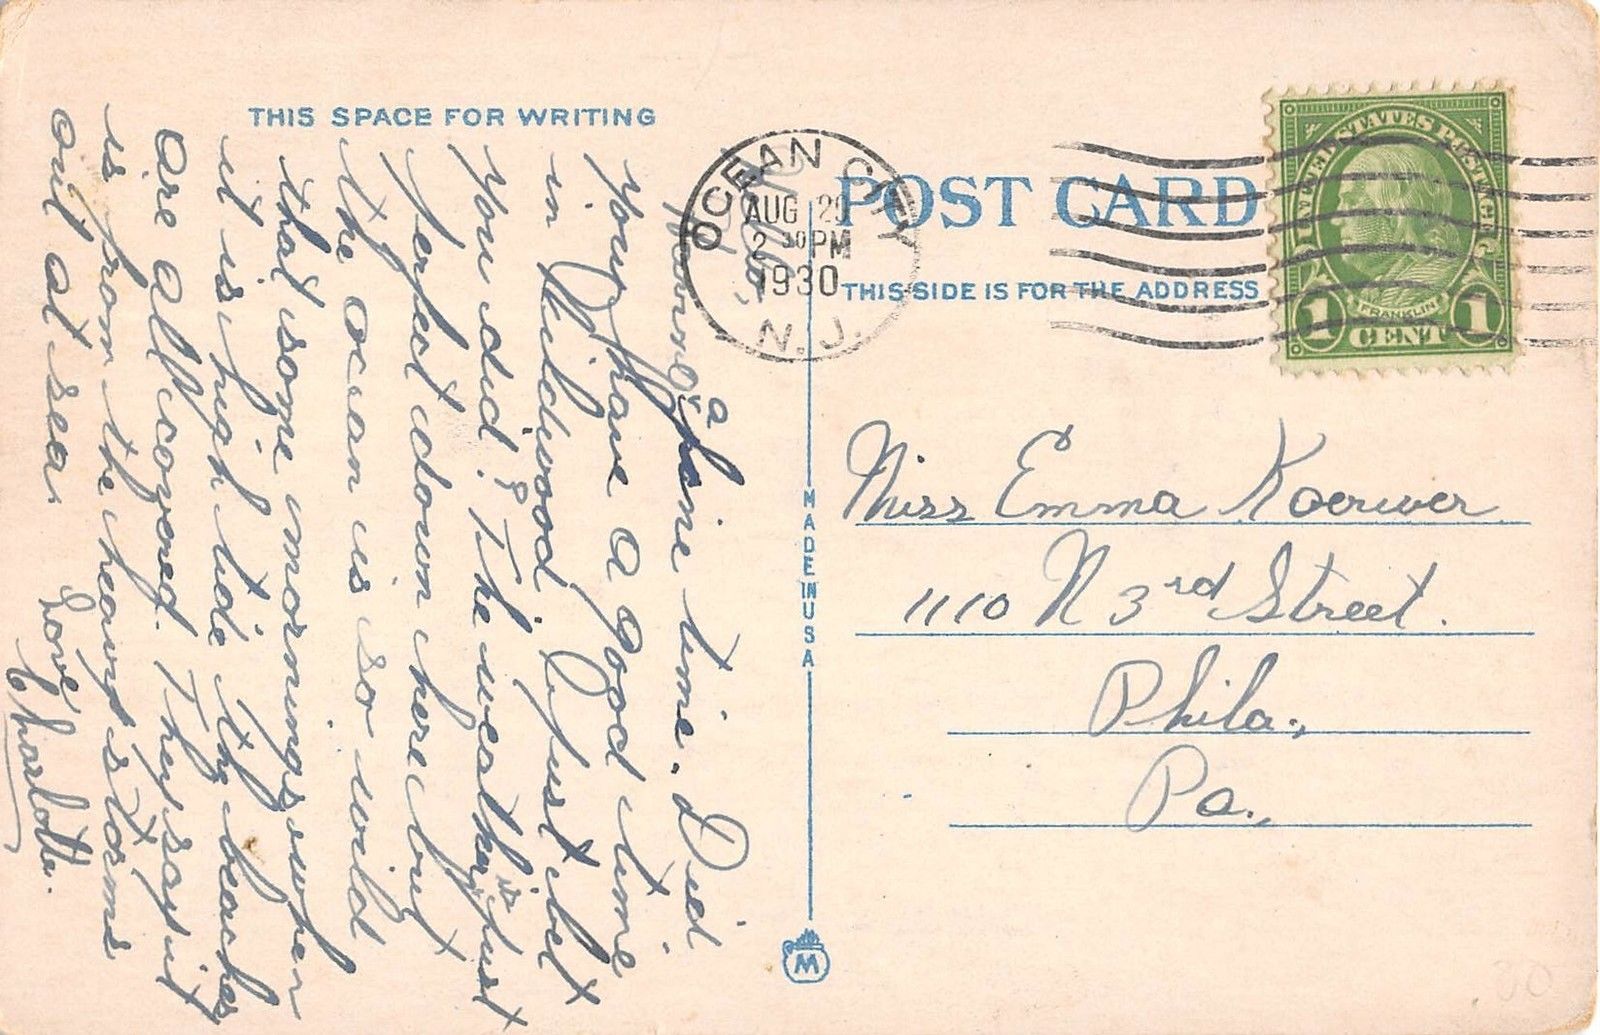 THIS SPACE FOR WRITING
Having a fine time. Did
you have a good time
in Wildwood. I just bet
you did! The weather is just
perfect down here but
the ocean is so wild
that some mornings when
it is high tide the beaches
are all covered. They say it
is from the heavy storms
out at sea.
Love
Charlotte.
OCEAN CITY
AUG 20
2 30 PM
1930
N. J.
POST CARD
THIS SIDE IS FOR THE ADDRESS
UNITED STATES POSTAGE
FRANKLIN
1 CENT 1
MADE IN USA
M
Miss Emma Koerwer
1110 N 3rd Street.
Phila.,
Pa.,